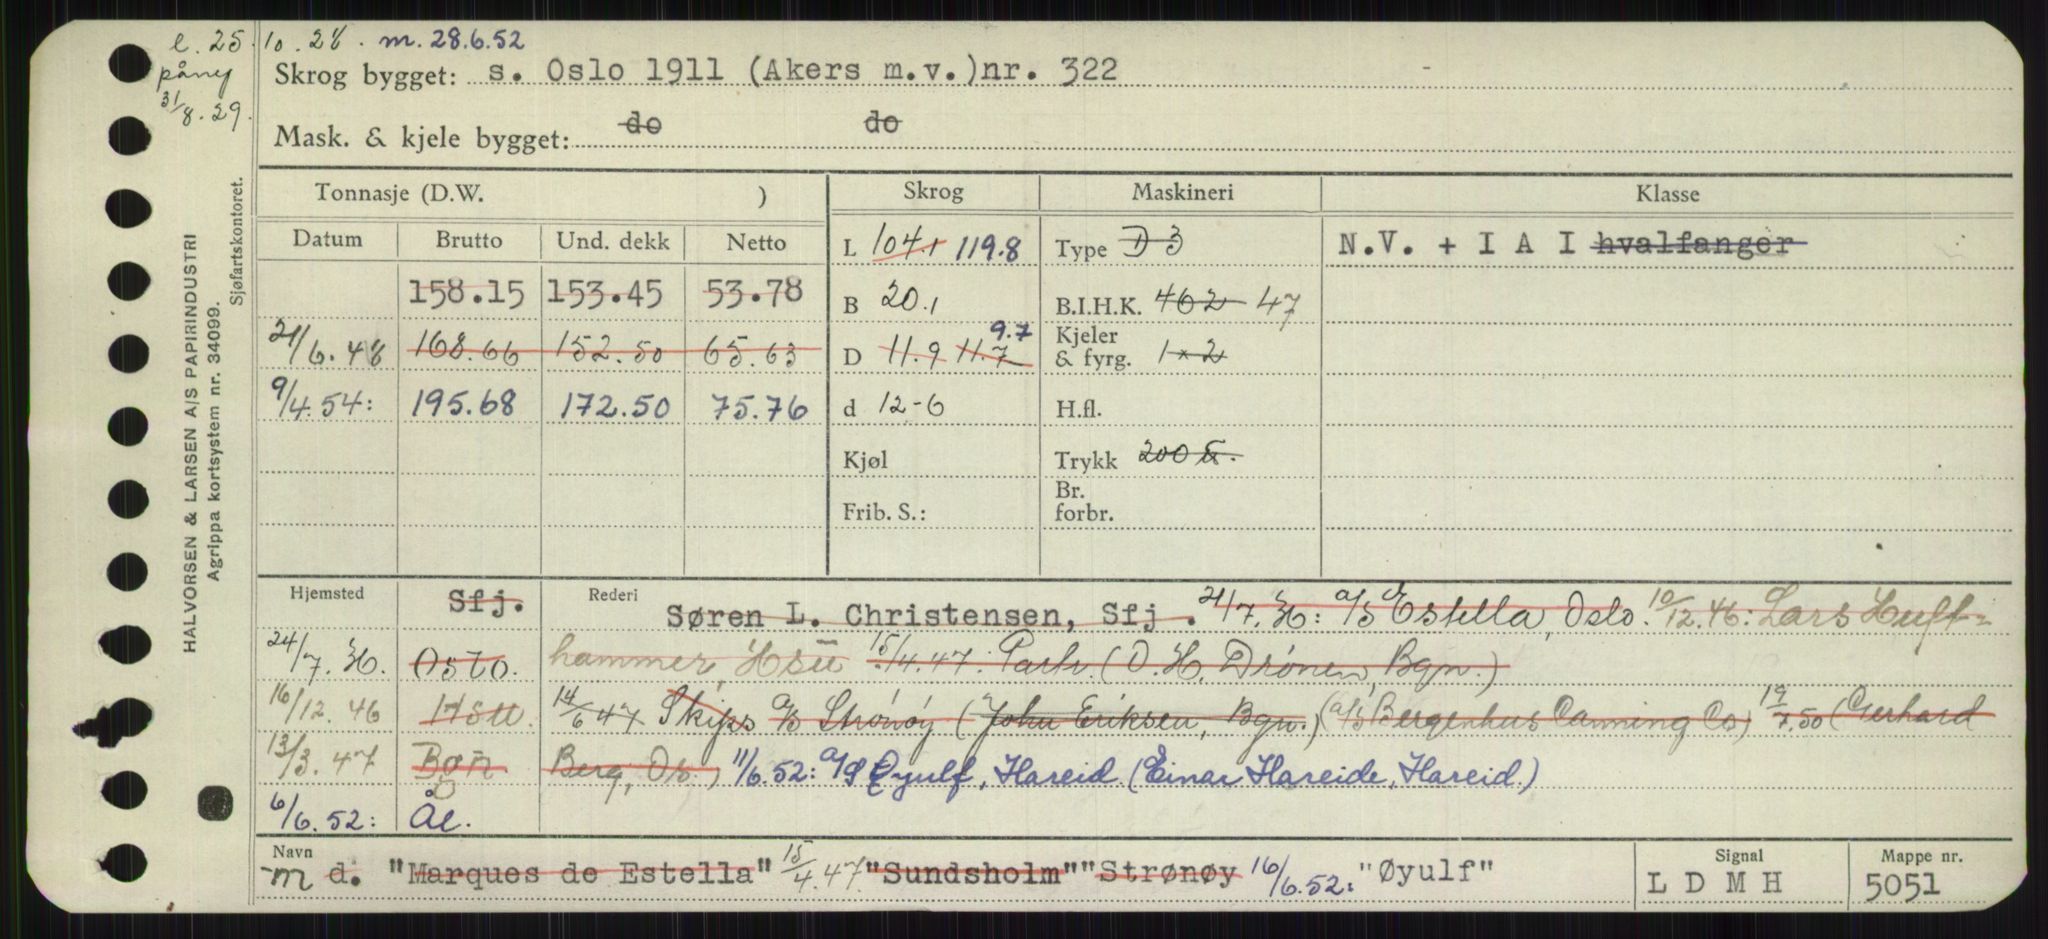 e. 25.10.28. m. 28.6.52
påny
31/8.29.
Skrog bygget: s. Oslo 1911 (Akers m.v.)nr. 322
Mask. & kjele bygget: do do
HALVORSEN & LARSEN A/S PAPIRINDUSTRI
Agrippa kortsystem nr. 34099.
Sjøfartskontoret.
Tonnasje (D.W. ) Skrog Maskineri Klasse
Datum Brutto Und. dekk Netto
L 104.1 119.8 Type D 3 N.V. + I A I hvalfanger
158.15 153.45 53.78 B 20.1 B.I.H.K. 462 47
21/6.48 168.66 152.50 65.63 D 11.9 11.7 9.7 Kjeler & fyrg. 1x2
9/4.54: 195.68 172.50 75.76 d 12-6 H.fl.
Kjøl Trykk 200
Frib. S.: Br. forbr.
Hjemsted Sfj. Rederi Søren L. Christensen, Sfj. 21/7. : a/s Estella, Oslo. 10/12.46: Lars Huft-
24/7. Oslo. hammer, Hsu 15/4.47: Partr. (O. H. Drønen, Bgn.)
16/12.46 Hsu. 14/6 47 Skips a/s Strønøy (John Eriksen, Bgn.) (a/s Bergenhus Canning Co) 19/7.50 (Gerhard
13/3.47 Bgn Berg, Os.) 11/6.52: a/s Øyulf, Hareid. (Einar Hareide, Hareid.)
6/6.52: Ål.
Navn Signal Mappe nr.
m d. "Marques de Estella" 15/4.47 "Sundsholm" "Strønøy 16/6.52: "Øyulf" L D M H 5051